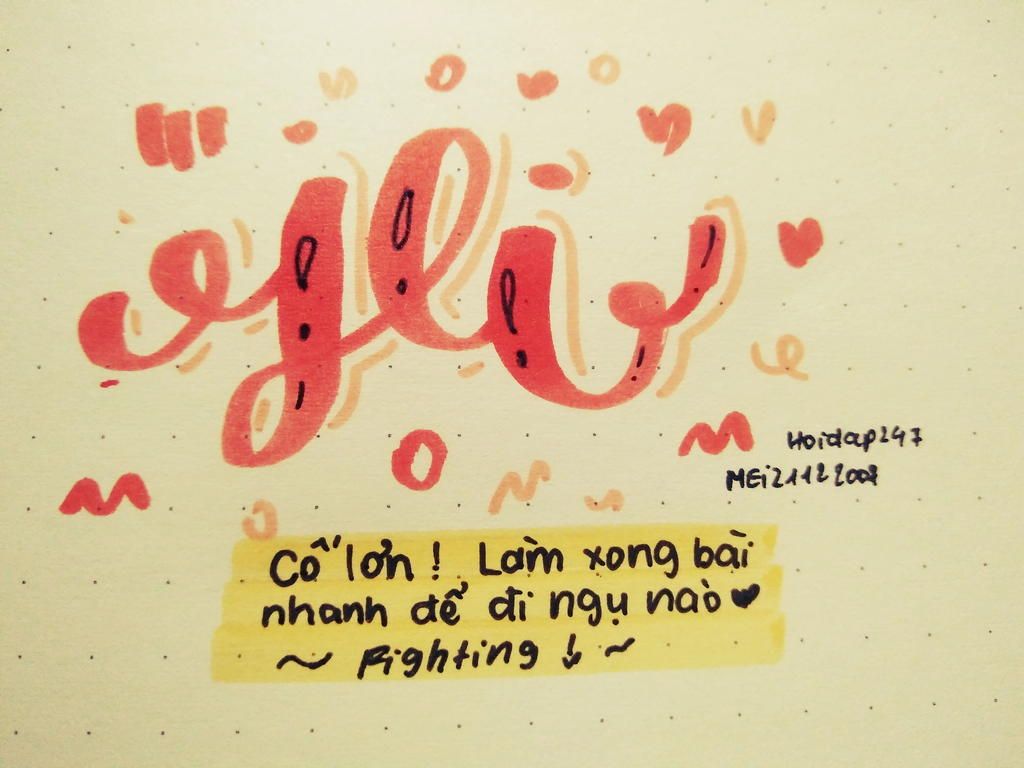 Hoidap247
MEi21122008
Cố lơn ! Làm xong bài
nhanh để đi ngụ nào ♥
~ Fighting ! ~